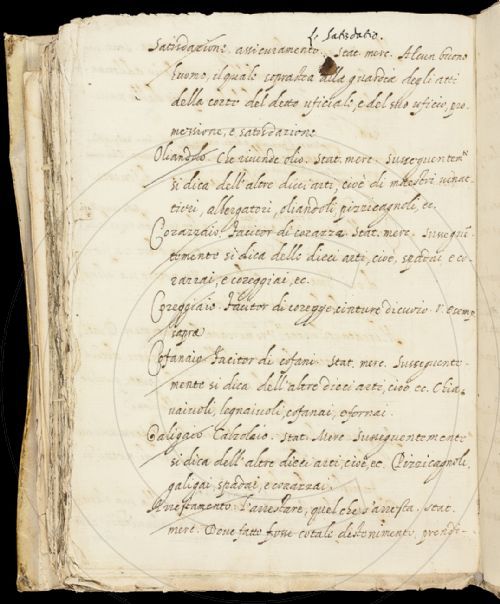 L. Satisdatio.
Satisdazione. assicuramento. Stat. merc. Alcun buono
huomo, il quale sopradta alla guardia degli atti
della corte del detto uficiale, e del suo uficio, pro
messione, e satisdazione
Oliandolo. Che rivende olio. Stat. merc. Sussequentemte
si dica dell'altre dieci arti, cioè di maestri vinat
tieri, albergatori, oliandoli pizzicagnoli, ec.
Corazzaio. Facitor di corazza. Stat. merc. Sussequen
temente si dica delle dieci arti, cioè, spadai, e co
razzai, e coreggiai, ec.
Coreggiaio. Facitor di coregge, cinture di cuoio. V. esemp.
sopra
Cofanaio. Facitor di cofani. Stat. merc. Sussequente
mente si dica dell'altre dieci arti, cioè ec. Chia
vaiuoli, legnaiuoli, cofanai, e fornai.
Galigaio. Calzolaio. Stat. Merc. Sussequentemente
si dica dell'altre dieci arti, cioè, ec. Pizzicagnoli,
galigai, spadai, e corazzai.
Arrestamento. L'arrestare, quel che s'arresta. Stat.
merc. Dove fatto fosse cotale destenimento, prendi-